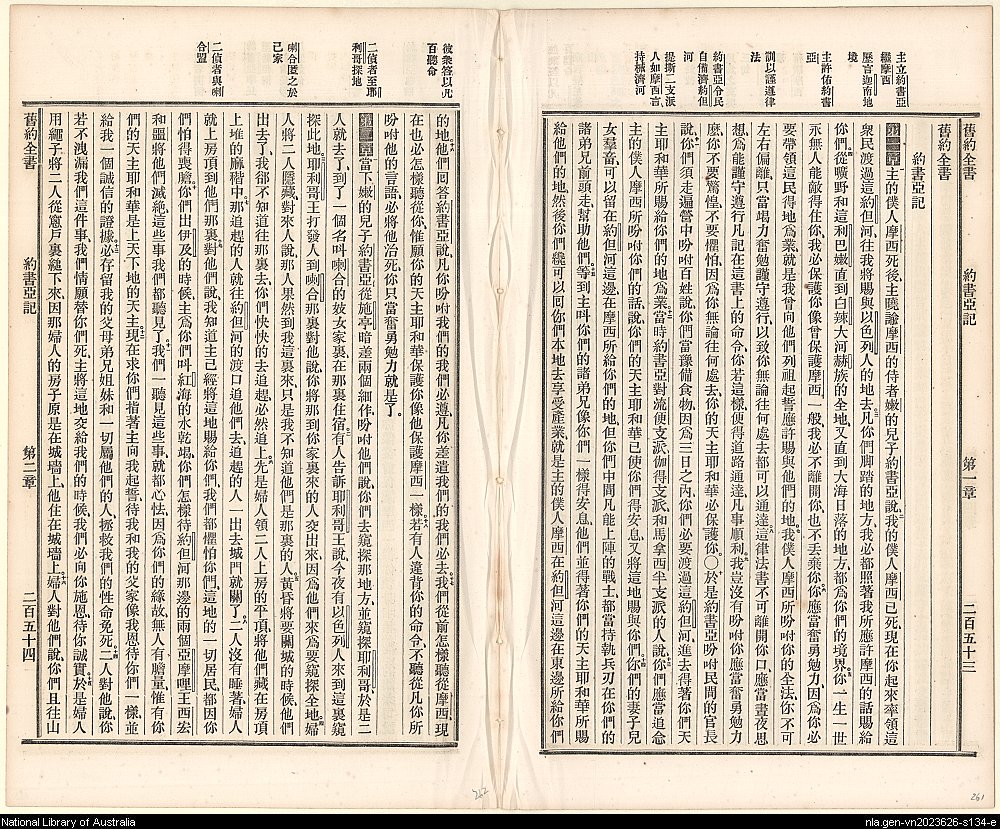 舊約全書
約書亞記
第一章
二百五十三
主立約書亞
繼摩西
歷言迦南地
境
主許佑約書
亞
訓以謹遵律
法
約書亞令民
自備濟約但
河
提斯二支派
人如摩西言
持械濟河
舊約全書
約書亞記
第一章主的僕人摩西死後主聽諭摩西的侍者嫩的兒子約書亞說我的僕人摩西已死現在你起來率領這
衆民渡過這約但河往我將賜與以色列人的地去凡你們脚踏的地方我必都照著我所應許摩西的話賜給
你們從曠野和這利巴嫩直到白辣大河赫族的全地又直到大海日落的地方都爲你們的境界你一生一世
永無人能敵得住你我必保護你像曾保護摩西一般我必不離開你也不丟棄你你應當奮勇勉力因爲你必
要帶領這民得地爲業就是我曾向他們列祖起誓應許賜與他們的地我僕人摩西所吩咐你的全法你不可
左右偏離只當竭力奮勉謹守遵行以致你無論往何處去都可以通達這律法書不可離開你口應當晝夜思
想爲能謹守遵行凡記在這書上的命令你若這樣便得道路通達凡事順利我豈沒有吩咐你應當奮勇勉力
麼你不要驚惶不要懼怕因爲你無論往何處去你的天主耶和華必保護你〇於是約書亞吩咐民間的官長
說你們須走遍營中吩咐百姓說你們當豫備食物因爲三日之內你們必要渡過這約但河進去得著你們天
主耶和華所賜給你們的地爲業當時約書亞對流便支派伽得支派和馬拿西半支派的人說你們應當追念
主的僕人摩西所吩咐你們的話說你們的天主耶和華已使你們得安息又將這地賜與你們你們的妻子兒
女羣畜可以仍留在約但河這邊在摩西所給你們的地但你們中間凡能上陣的戰士都當持執兵刃在你們的
諸弟兄前頭走幫助他們等到主叫你們的諸弟兄像你們一樣得安息他們並得著你們的天主耶和華所賜
給他們的地然後你們纔可以回你們本地去享受產業就是主的僕人摩西在約但河這邊在東邊所給你們
彼衆答以凡
百聽命
二偵者至耶
利哥探地
喇合匿之於
己家
二偵者與喇
合盟
的地他們回答約書亞說凡你吩咐我們的我們必遵凡你差遣我們的我們必去我們從前怎樣聽從摩西現
在也必怎樣聽從你惟願你的天主耶和華保護你像他保護摩西一樣若有人違背你的命令不聽從凡你所
吩咐他的言語必將他治死你只當奮勇勉力就是了
第二章當下嫩的兒子約書亞從施亭暗差兩個細作吩咐他們說你們去窺探那地方並窺探耶利哥於是二
人就去了到了一個名叫喇合的妓女家裏在那裏住宿有人告訴耶利哥王說今夜有以色列人來到這裏窺
探此地耶利哥王打發人到喇合那裏對他說你將那到你家裏來的人交出來因爲他們來爲要窺探全地婦
人將二人隱藏對來人說那人果然到我這裏來只是我不知道他們是那裏的人黃昏將要關城的時候他們
出去了我卻不知道往那裏去你們快快的去追趕必然追上先是婦人領二人上房的平頂將他們藏在房頂
上堆的麻稭中那追趕的人就往約但河的渡口追他們去追趕的人一出去城門就關了二人沒有睡著婦人
就上房頂到他們那裏對他們說我知道主已經將這地賜給你們我們都懼怕你們這地的一切居民都因你
們怕得喪膽你們出伊及的時候主爲你們叫紅海的水乾竭你們怎樣待約但河那邊的兩個亞摩哩王西宏
和噩將他們滅絕這些事我們都聽見了我們一聽見這些事就都心怯因爲你們的緣故無人有膽量惟有你
們的天主耶和華是上天下地的天主現在求你們指著主向我起誓待我和我的父家像我恩待你們一樣並
給我一個誠信的證據必存留我的父母弟兄姐妹和一切屬他們的人拯救我們的性命免死二人對他說你
若不洩漏我們這件事我們情願替你們死主將這地交給我們的時候我們必向你施恩待你誠實於是婦人
用繩子將二人從窻戶裏縋下來因那婦人的房子原是在城墻上他住在城墻上婦人對他們說你們且往山
舊約全書
約書亞記
第二章
二百五十四
262
261
National Library of Australia
nla.gen-vn2023626-s134-e